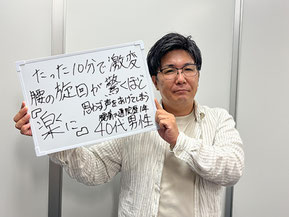 たった10分で激変
腰の旋回が驚くほど
思わず声をあげてしまう
『楽に』 腰痛で通院歴1年
40代男性